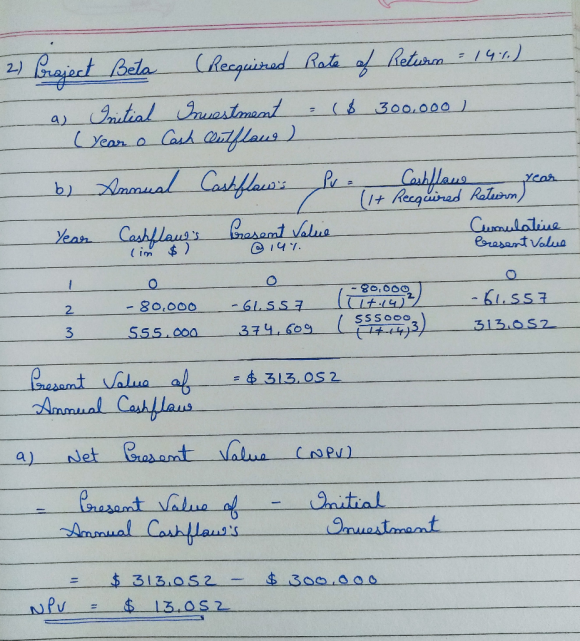 2) Project Beta (Recquired Rate of Return = 14%)
a) Initial Investment = ($ 300.000)
(Year 0 Cash Outflow)
b) Annual Cashflow: PV = Cashflow / (1+ Recquired Return) year
Year Cashflow's Present Value Cumulative
(in $) @ 14% Present Value
1 0 0 0
2 -80,000 -61.557 (-80,000 / (1+.14)2) -61.557
3 555.000 374,609 (555000 / (1+.14)3) 313.052
Present Value of = $ 313.052
Annual Cashflow
a) Net Present Value (NPV)
= Present Value of - Initial
Annual Cashflow's Investment
= $ 313.052 - $ 300.000
NPV = $ 13.052